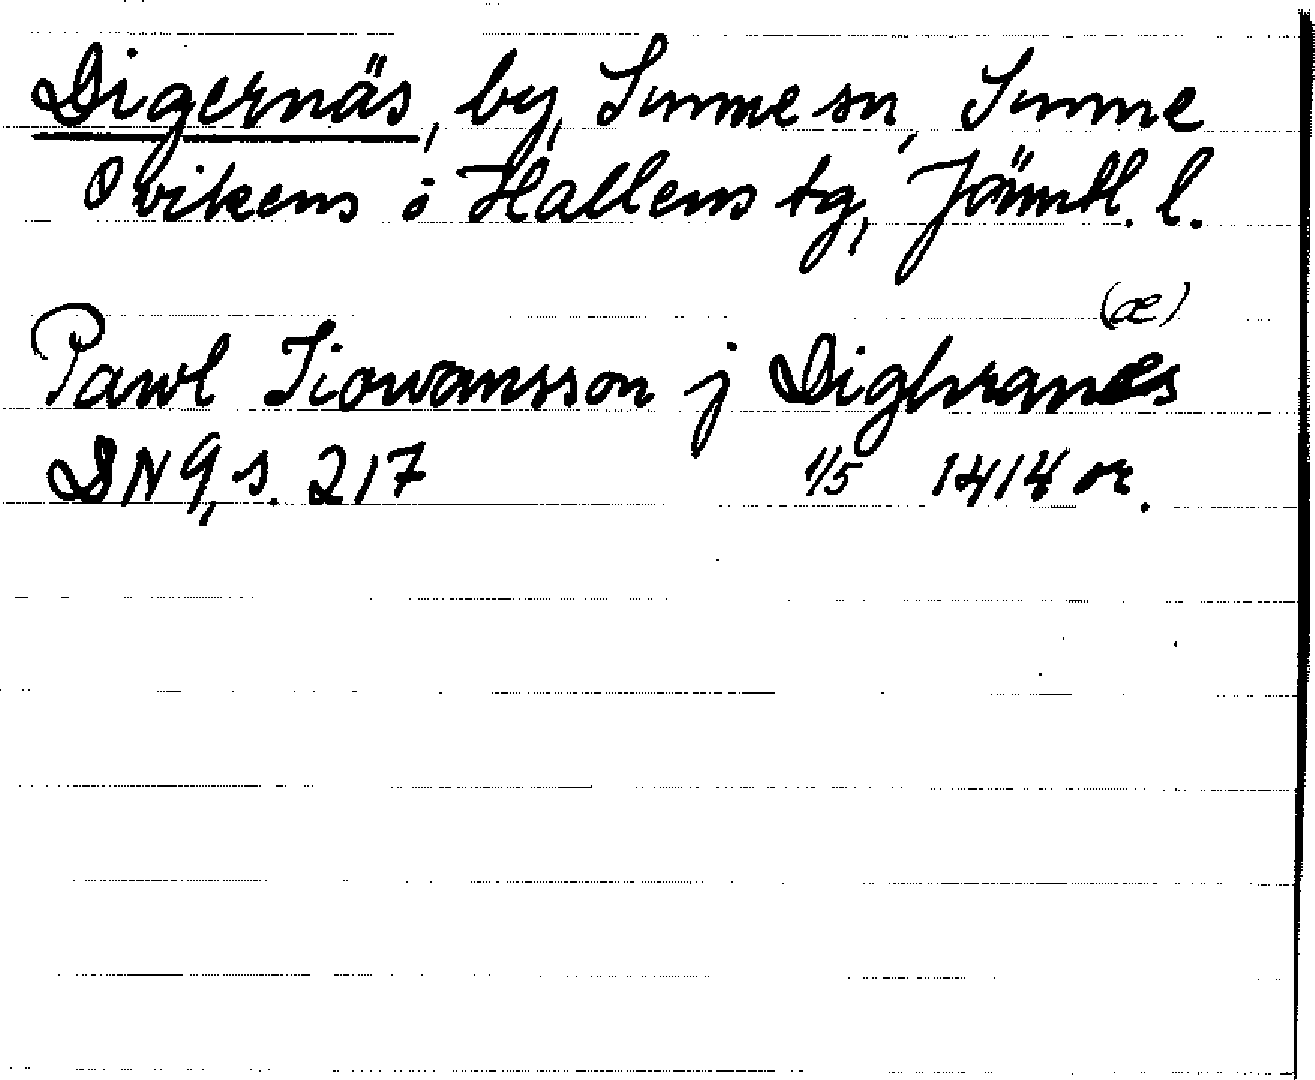 Digernäs, by, Sunne sn, Sunne
Ovikens o Hallens tg, Jämtl. l.
(æ)
Pawl Jiowansson j Dighranæs
DN 9, s. 217 1/5 1414 or.